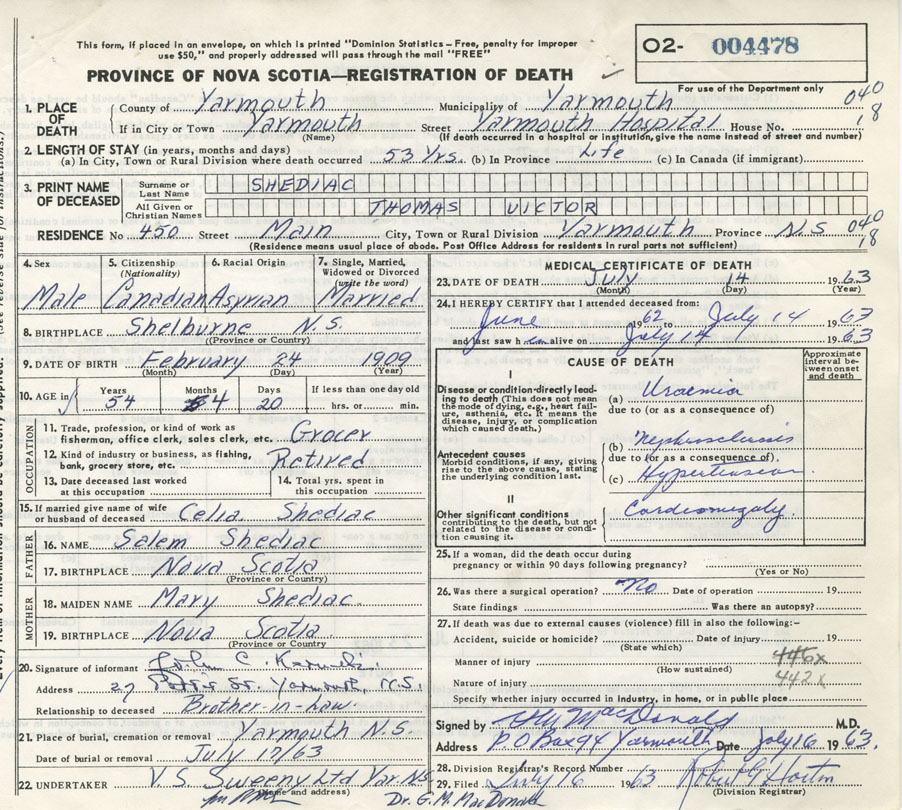 This form, if placed in an envelope, on which is printed "Dominion Statistics – Free, penalty for improper
use $50," and properly addressed will pass through the mail "FREE"
O2- 004478
PROVINCE OF NOVA SCOTIA—REGISTRATION OF DEATH
For use of the Department only
1. PLACE OF DEATH County of Yarmouth Municipality of Yarmouth 040
If in City or Town Yarmouth Street Yarmouth Hospital House No. 18
(Name) (If death occurred in a hospital or institution, give the name instead of street and number)
2. LENGTH OF STAY (in years, months and days)
(a) In City, Town or Rural Division where death occurred 53 Yrs. (b) In Province Life (c) In Canada (if immigrant)
3. PRINT NAME OF DECEASED Surname or Last Name SHEDIAC
All Given or Christian Names THOMAS VICTOR
RESIDENCE No 450 Street Main City, Town or Rural Division Yarmouth Province N.S 040
18
(Residence means usual place of abode. Post Office Address for residents in rural parts not sufficient)
4. Sex 5. Citizenship (Nationality) 6. Racial Origin 7. Single, Married, Widowed or Divorced (write the word)
Male Canadian Asyrian Married
8. BIRTHPLACE Shelburne N.S.
(Province or Country)
9. DATE OF BIRTH February 24 1909
(Month) (Day) (Year)
10. AGE in Years Months Days If less than one day old
54 4 20 hrs. or min.
OCCUPATION
11. Trade, profession, or kind of work as
fisherman, office clerk, sales clerk, etc. Grocer
12. Kind of industry or business, as fishing,
bank, grocery store, etc. Retired
13. Date deceased last worked
at this occupation
14. Total yrs. spent in
this occupation
15. If married give name of wife
or husband of deceased Celia Shediac
FATHER
16. NAME Salem Shediac
17. BIRTHPLACE Nova Scotia
(Province or Country)
MOTHER
18. MAIDEN NAME Mary Shediac
19. BIRTHPLACE Nova Scotia
(Province or Country)
20. Signature of informant
Address 27 St. Yarmouth, N.S.
Relationship to deceased Brother-in-law.
21. Place of burial, cremation or removal Yarmouth N.S.
Date of burial or removal July 17/63
22. UNDERTAKER V. S. Sweeny Ltd Yar. N.S
(Name and address)
Dr. G. M. MacDonald
MEDICAL CERTIFICATE OF DEATH
23. DATE OF DEATH July 14 1963
(Month) (Day) (Year)
24. I HEREBY CERTIFY that I attended deceased from:
June 1962 to July 14 1963
and last saw h im alive on July 14 1963
CAUSE OF DEATH
Approximate interval between onset and death
I
Disease or condition directly leading to death (This does not mean the mode of dying, e.g., heart failure, asthenia, etc. It means the disease, injury, or complication which caused death.)
(a) Uraemia
due to (or as a consequence of)
Antecedent causes
Morbid conditions, if any, giving rise to the above cause, stating the underlying condition last.
(b) nephrosclerosis
due to (or as a consequence of)
(c) Hypertension
II
Other significant conditions
contributing to the death, but not related to the disease or condition causing it.
Cardiomegaly
25. If a woman, did the death occur during
pregnancy or within 90 days following pregnancy?
(Yes or No)
26. Was there a surgical operation? No Date of operation 19
State findings Was there an autopsy?
27. If death was due to external causes (violence) fill in also the following:–
Accident, suicide or homicide? Date of injury 19
(State which)
Manner of injury 446x
(How sustained)
Nature of injury 442x
Specify whether injury occurred in Industry, in home, or in public place
Signed by MacDonald M.D.
Address P.O Box 94 Yarmouth Date July 16 1963.
28. Division Registrar's Record Number
29. Filed July 16 1963 Robert Horton
(Division Registrar)